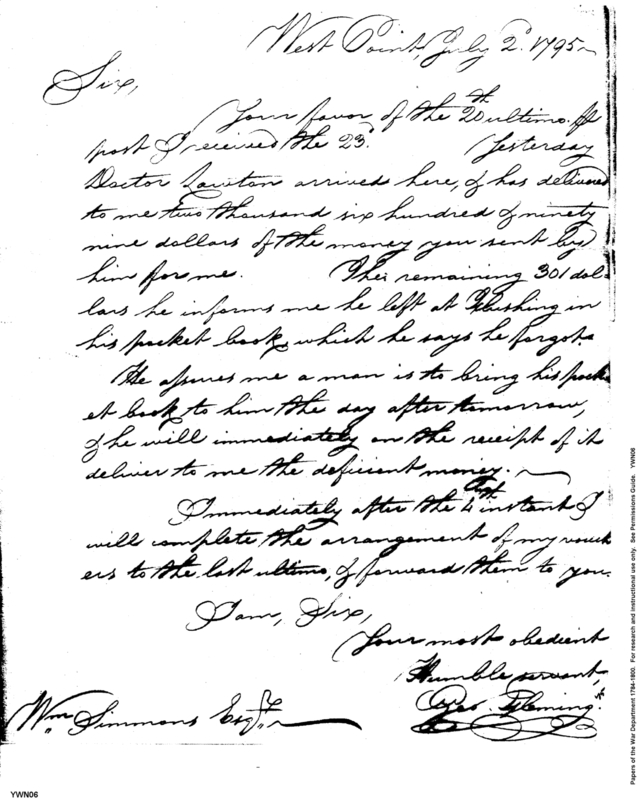 West Point, July 2d. 1795
Sir,
Your favor of the 20th ultimo. pr
post I received the 23d. Yesterday
Doctor Lawton arrived here, & has delivered
to me two thousand six hundred & ninety
nine dollars of the money you sent by
him for me. The remaining 301 dol
lars he informs me he left at Flushing in
his pocket book, which he says he forgot.
He assures me a man is to bring his pock
et book to him the day after tomorrow,
& he will immediately on the receipt of it
deliver to me the deficient money.
Immediately after the 4th instant I
will complete the arrangement of my vouch
ers to the last ultimo, & forward them to you.
I am, Sir,
Your most obedient
Humble servant,
Geo. Fleming.
Wm Simmons Esqr.
YWN06
Papers of the War Department 1784-1800. For research and instructional use only. See Permissions Guide. YWN06